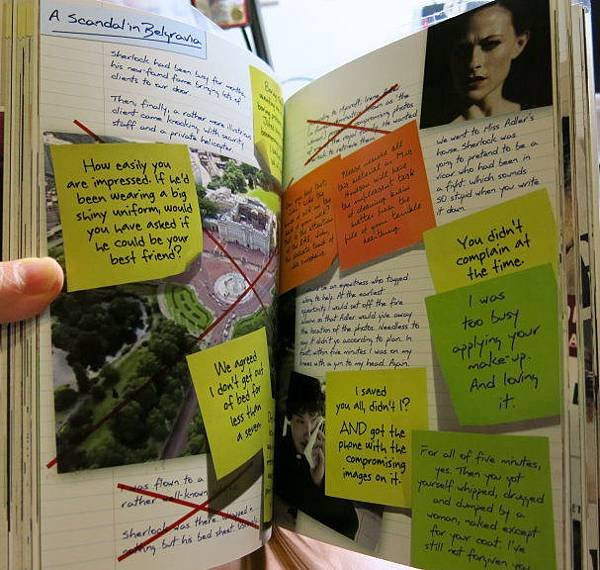 A Scandal in Belgravia
Sherlock had been busy for months,
his new-found fame bringing lots of
clients to our door.
Then, finally, a rather more illustrious
client came knocking with security
staff and a private helicopter.
How easily you
are impressed. If he'd
been wearing a big
shiny uniform, would
you have asked if
he could be your
best friend?
We agreed
I don't get out
of bed for
less than
a seven.
was flown to a
rather well-known
Sherlock was there, dressed in
nothing but his bed sheet.
compromising photos
wanted
to retrieve them.
Please remove all
this material as Mrs
Hudson will have
the unpleasant task
of cleaning
better than the
pile of your terrible
We went to Miss Adler's
house. Sherlock was
going to pretend to be a
vicar who had been in
a fight. Which sounds
SO stupid when you write
it down.
You didn't
complain at
the time.
I was
too busy
applying your
make-up.
And loving
it.
be an eyewitness who tagged
along to help. At the earliest
opportunity I would set off the fire
alarm so that Adler would give away
the location of the photos. Needless to
say it didn't go according to plan. In
fact, within five minutes I was on my
knees with a gun to my head. Again.
I saved
you all, didn't I?
AND got the
phone with the
compromising
images on it.
For all of five minutes,
yes. Then you got
yourself whipped, drugged
and dumped by a
woman, naked except
for your coat. I've
still not forgiven you